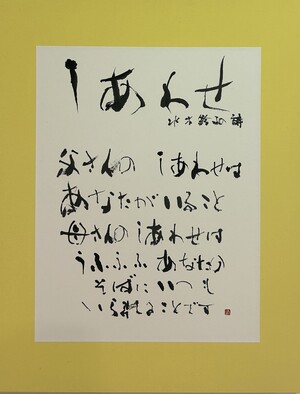 しあわせ
父さんの しあわせは
あなたがいること
母さんの しあわせは
うふふふ あなたの
そばに いつも
いられることです